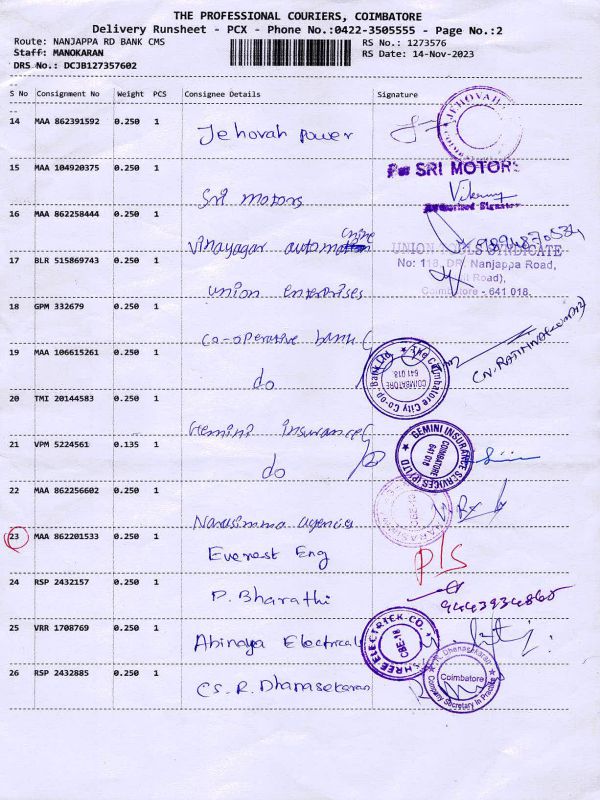 THE PROFESSIONAL COURIERS, COIMBATORE
Delivery Runsheet - PCX - Phone No.:0422-3505555 - Page No.:2
Route: NANJAPPA RD BANK CMS RS No.: 1273576
Staff: MANOKARAN RS Date: 14-Nov-2023
DRS No.: DCJB127357602
S No Consignment No Weight PCS Consignee Details Signature
14 MAA 862391592 0.250 1 Jehovah power
JEHOVAH
15 MAA 104920375 0.250 1 Sri motors
For SRI MOTORS
Authorised Signatory
16 MAA 862258444 0.250 1 Vinayagar
17 BLR 515869743 0.250 1 union enterprises
UNION TOOLS SYNDICATE
No: 118, DR. Nanjappa Road,
Coimbatore - 641 018.
18 GPM 332679 0.250 1 Co-operative bank
19 MAA 106615261 0.250 1 do
The Coimbatore City Co-op. Bank Ltd.
COIMBATORE
641 018
20 TMI 20144583 0.250 1 Gemini insurance
21 VPM 5224561 0.135 1 do
GEMINI INSURANCE SERVICES (P) LTD
COIMBATORE
641 018
22 MAA 862256602 0.250 1 Narasimma agencies
23 MAA 862201533 0.250 1 Everest Eng P/S
24 RSP 2432157 0.250 1 P. Bharathi 9443934865
25 VRR 1708769 0.250 1 Abinaya Electricals
SHREE ELECTRICK CO.
CBE-18
26 RSP 2432885 0.250 1 CS. R. Dhanasekaran
R. Dhanasekaran
Coimbatore
Company Secretary in Practice